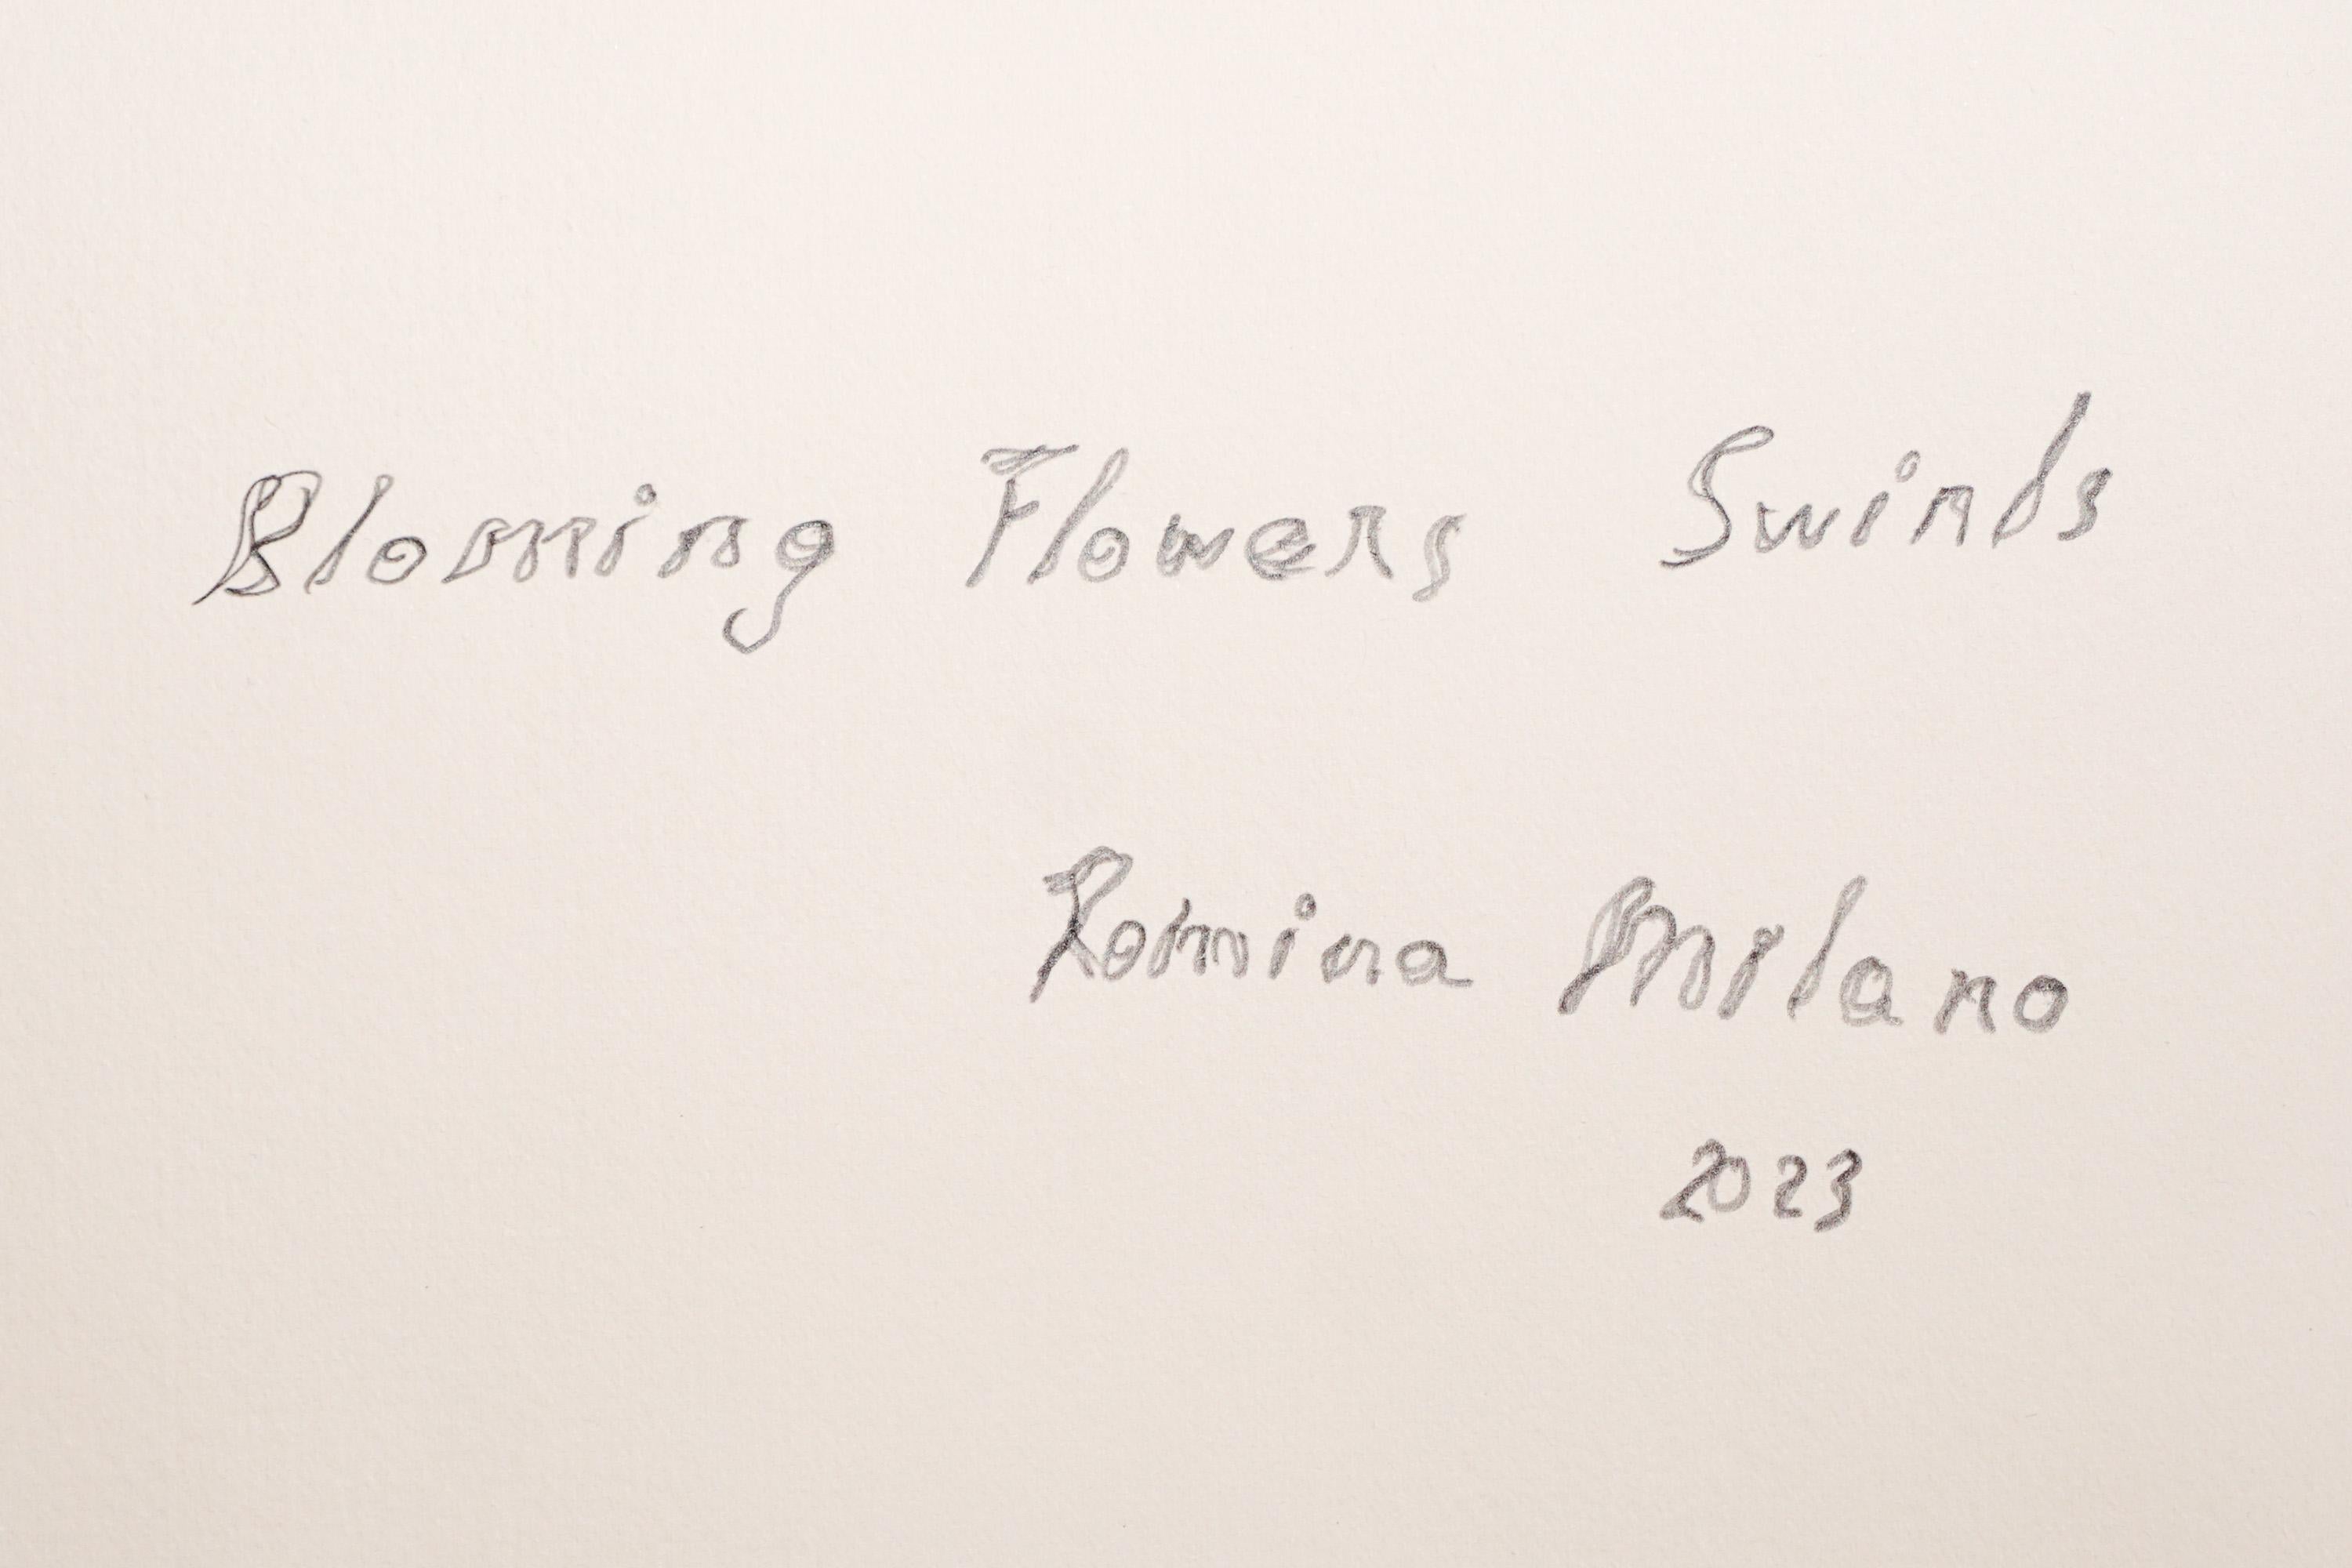 Bloming Flowers Swinds
Romina Milano
2023